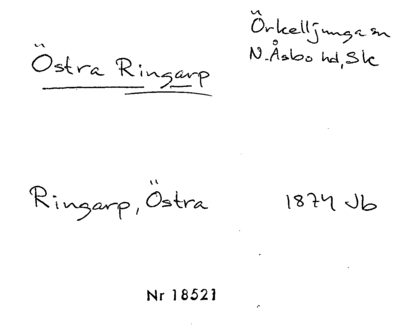 Östra Ringarp
Örkelljunga sn
N. Åsbo hd, Sk
Ringarp, Östra 1874 Jb
Nr 18521